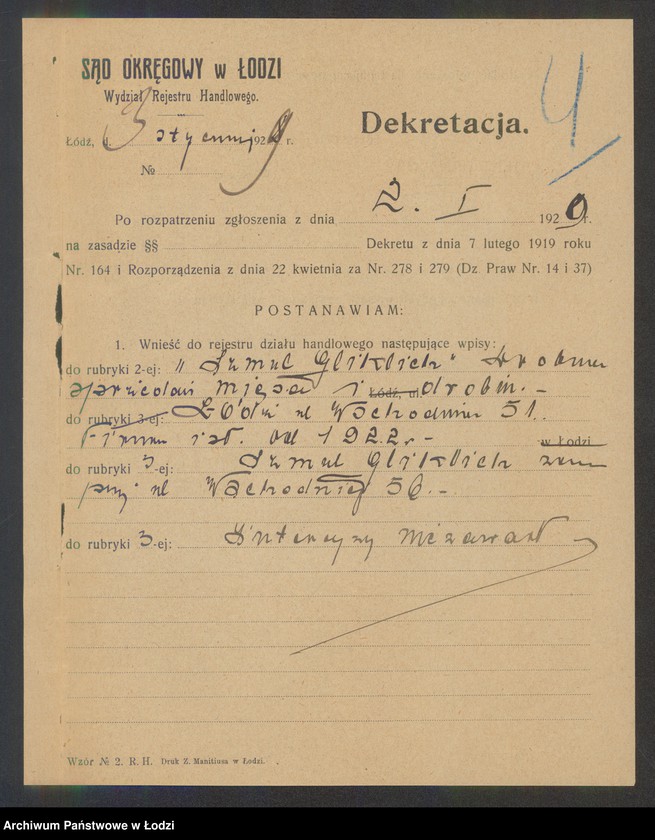 SĄD OKRĘGOWY w ŁODZI
Wydział Rejestru Handlowego.
Dekretacja.
4
Łódź, d. 3 stycznia 1929 r.
№
Po rozpatrzeniu zgłoszenia z dnia 2. I 1929 r.
na zasadzie §§ Dekretu z dnia 7 lutego 1919 roku
Nr. 164 i Rozporządzenia z dnia 22 kwietnia za Nr. 278 i 279 (Dz. Praw Nr. 14 i 37)
POSTANAWIAM:
1. Wnieść do rejestru działu handlowego następujące wpisy:
do rubryki 2-ej: „Szmul Gliklich" drobna
sprzedaż mięsa i Łódź, ul. drobiu. -
do rubryki 3-ej: Łódź ul Wschodnia 51.
Firma ist. od 1922 r. -
w Łodzi
do rubryki 3-ej: Szmul Gliklich zam
przy ul Wschodniej 56. -
do rubryki 3-ej: Intercyzy nie zawarł
Wzór № 2. R. H. Druk Z. Manitiusa w Łodzi.
Archiwum Państwowe w Łodzi